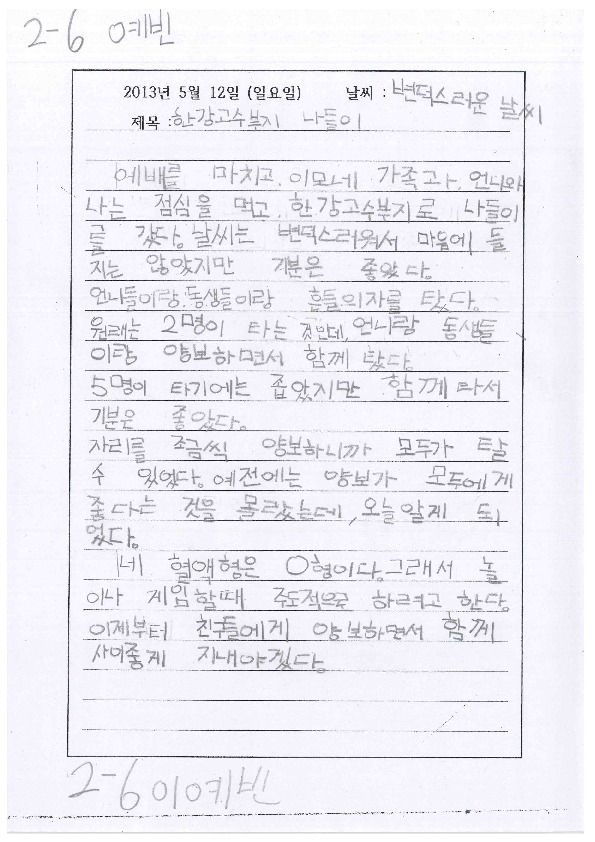 2-6 예빈
2013년 5월 12일 (일요일) 날씨 : 변덕스러운 날씨
제목 : 한강고수부지 나들이
예배를 마치고, 이모네 가족과, 언니와
나는 점심을 먹고, 한강고수부지로 나들이
를 갔다. 날씨는 변덕스러워서 마음에 들
지는 않았지만 기분은 좋았다.
언니들이랑, 동생들이랑 흔들의자를 탔다.
원래는 2명이 타는 것인데, 언니랑 동생들
이랑 양보하면서 함께 탔다.
5명이 타기에는 좁았지만 함께 타서
기분은 좋았다.
자리를 조금씩 양보하니까 모두가 탈
수 있었다. 예전에는 양보가 모두에게
좋다는 것을 몰랐는데, 오늘 알게 되
었다.
네 혈액형은 O형이다. 그래서 놀
이나 게임할때 주도적으로 하려고 한다.
이제부터 친구들에게 양보하면서 함께
사이좋게 지내야겠다.
2-6 이예빈